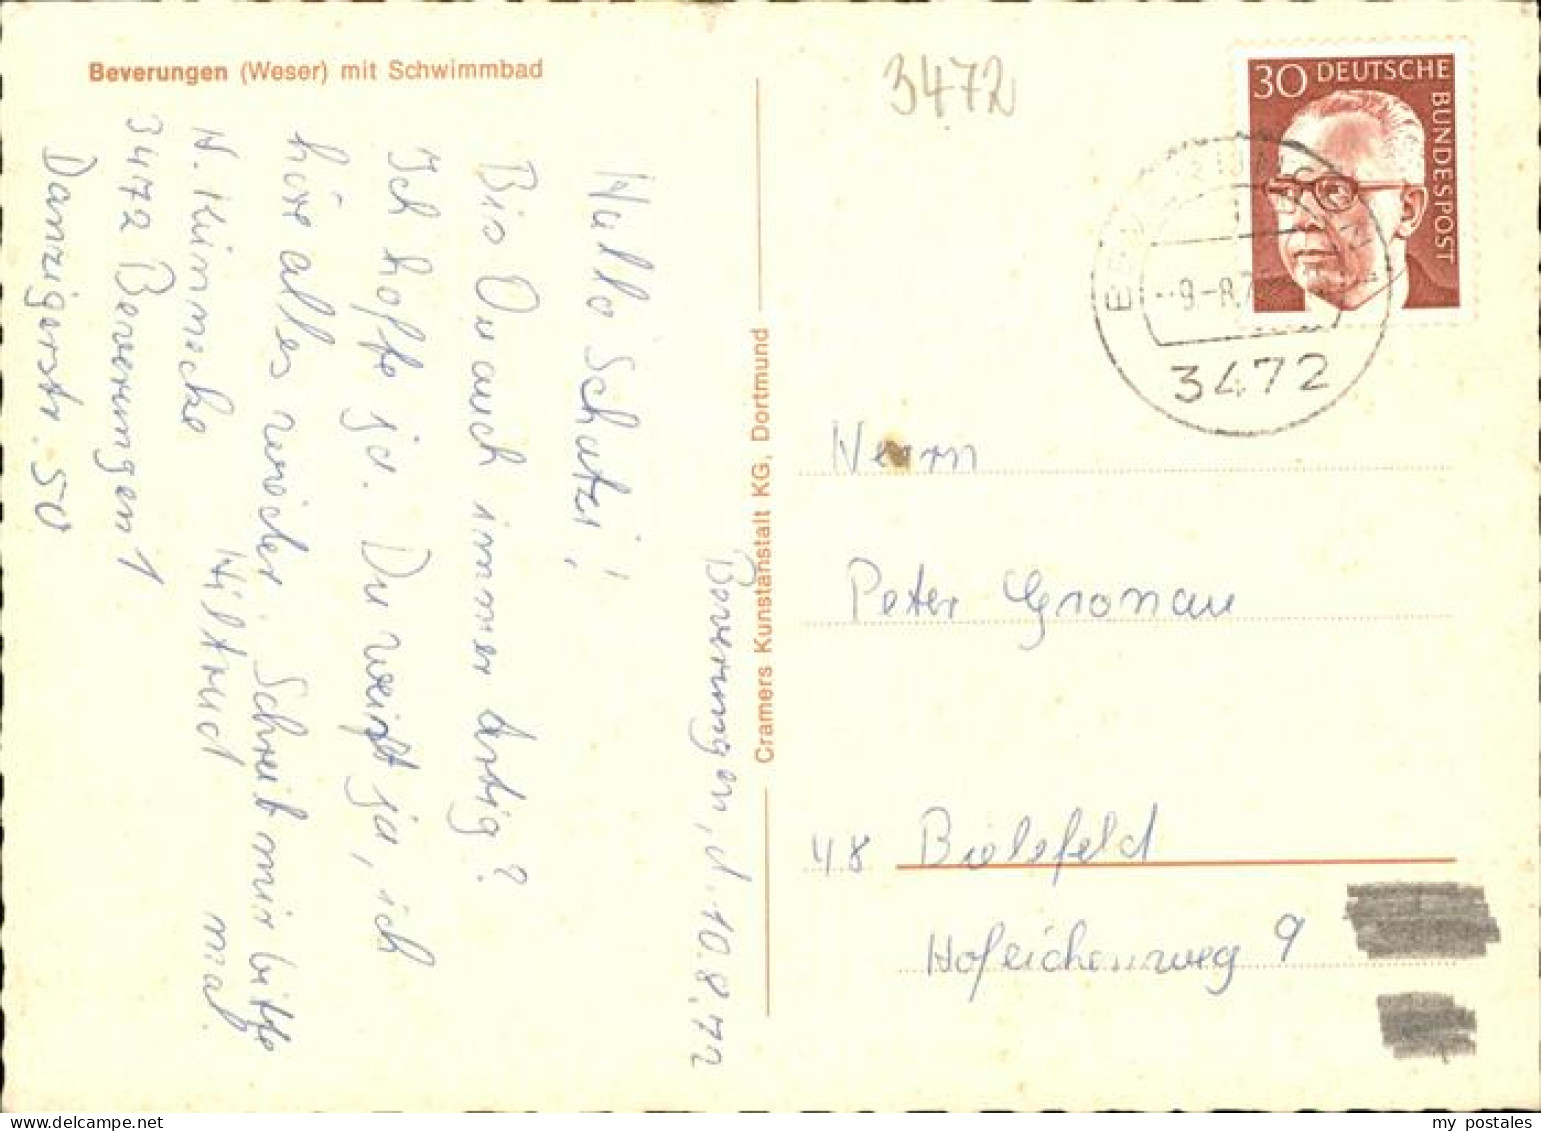 Beverungen (Weser) mit Schwimmbad
3472
30 DEUTSCHE
BUNDESPOST
-9.-8.7
3472
Cramers Kunstanstalt KG, Dortmund
Beverungen, d. 10.8.72
Hallo Schatzi!
Bis Du auch immer Artig?
Ich hoffe ja. Du weißt ja, ich
höre alles wieder. Schreib mir bitte
mal.
Hiltrud
H.
3472 Beverungen 1
Danzigerstr. 50
Herrn
Peter Gronau
48 Bielefeld
Hofeichenweg 9
my postales